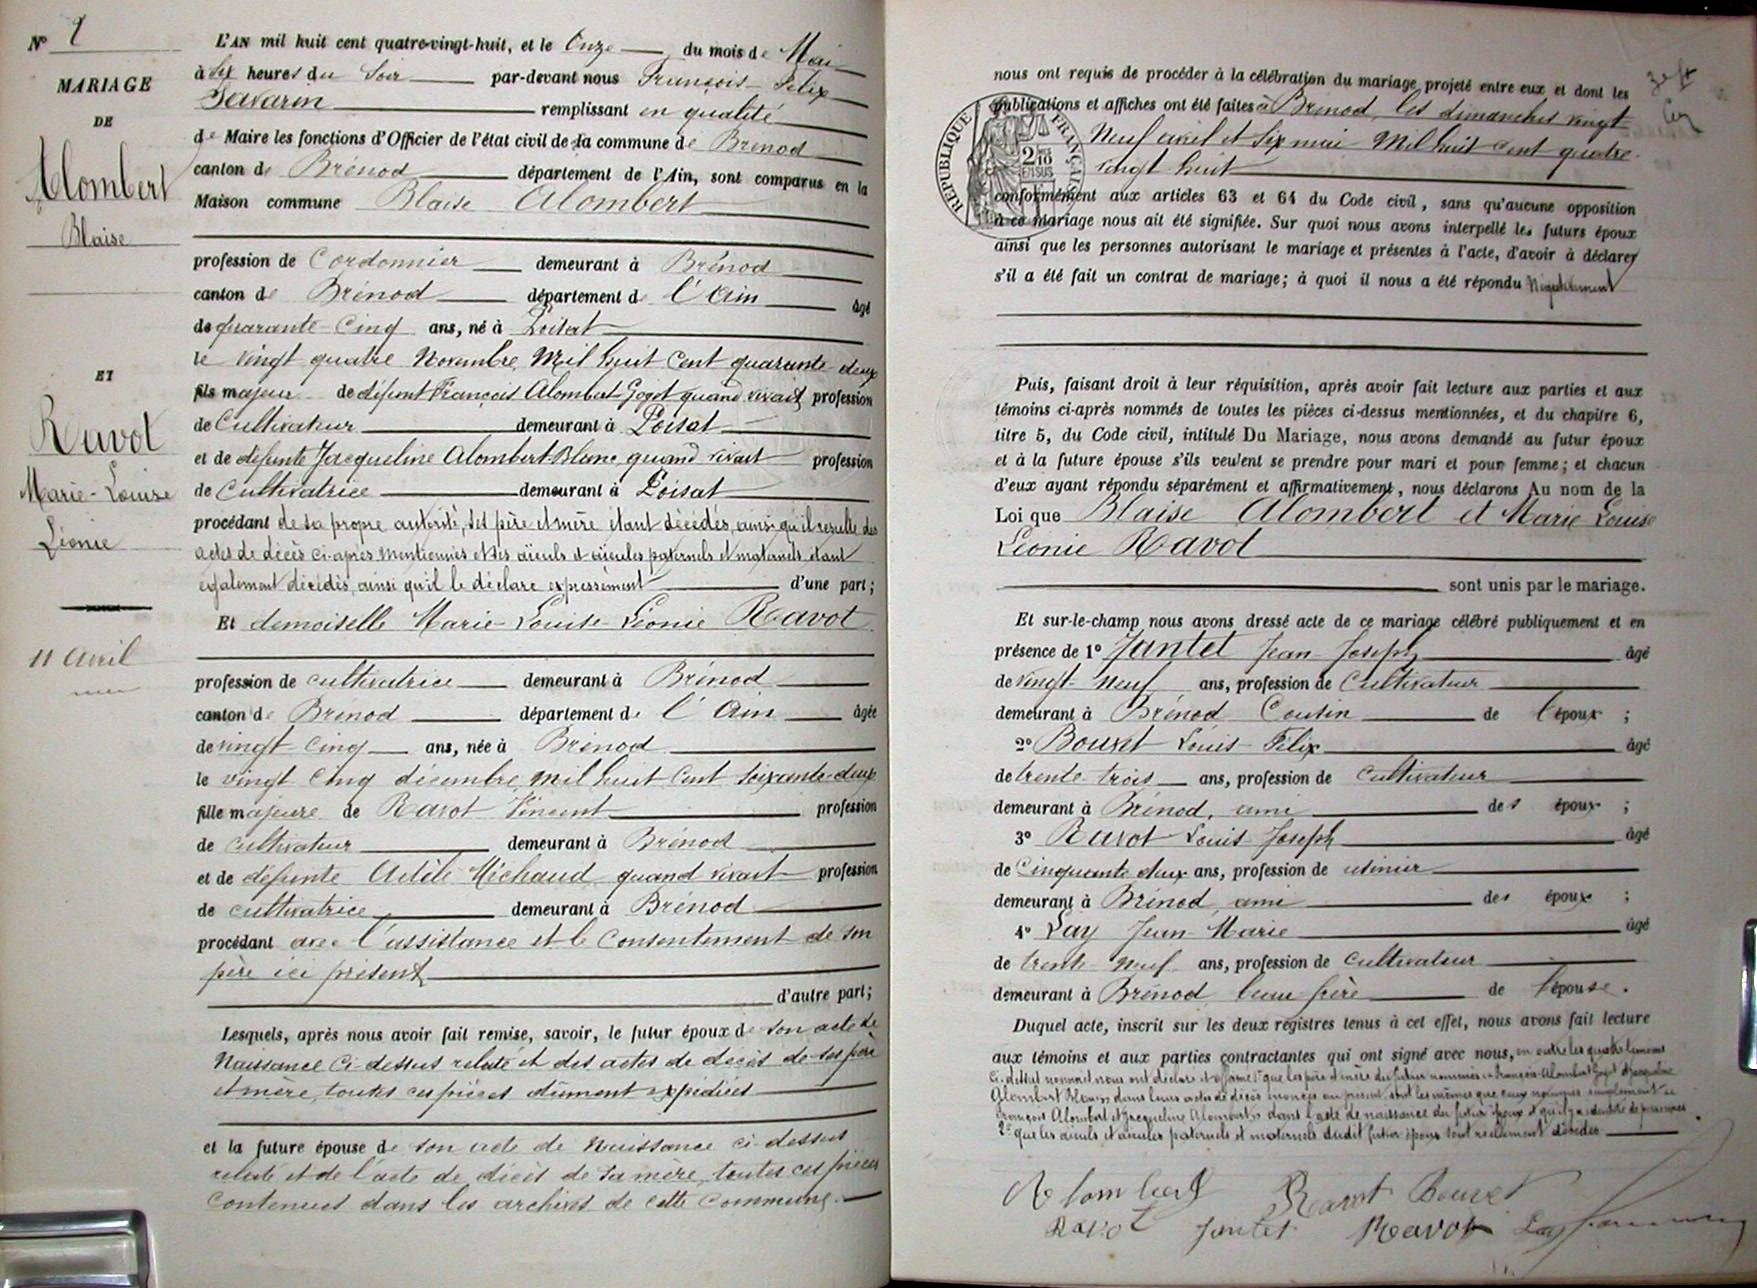 N° 2
MARIAGE
DE
Alombert
Blaise
ET
Ravot
Marie-Louise
Léonie
11 avril
L'AN mil huit cent quatre-vingt-huit, et le Onze du mois de Mai
à Six heures du Soir par-devant nous François Félix
Savarin remplissant en qualité
de Maire les fonctions d'Officier de l'état civil de la commune de Brénod
canton de Brénod département de l'Ain, sont comparus en la
Maison commune Blaise Alombert
profession de Cordonnier demeurant à Brénod
canton de Brénod département de l'Ain âgé
de quarante-Cinq ans, né à Poisat
le vingt quatre Novembre Mil huit Cent quarante deux
fils majeur de défunt François Alombert Goget quand vivait profession
de Cultivateur demeurant à Poisat
et de défunte Jacqueline Alombert-Blanc quand vivait profession
de Cultivatrice demeurant à Poisat
procédant de sa propre autorité, ses père et mère étant décédés, ainsi qu'il résulte des
actes de décès ci-après mentionnés et ses aïeuls et aïeules paternels et maternels étant
également décédés ainsi qu'il le déclare expressément d'une part;
Et demoiselle Marie-Louise-Léonie Ravot
profession de cultivatrice demeurant à Brénod
canton de Brénod département de l'Ain âgée
de vingt-cinq ans, née à Brénod
le vingt cinq décembre, mil huit Cent soixante-deux
fille majeure de Ravot Vincent profession
de cultivateur demeurant à Brénod
et de défunte Adèle Michaud quand vivait profession
de cultivatrice demeurant à Brénod
procédant avec l'assistance et le Consentement de son
père ici présent
d'autre part;
Lesquels, après nous avoir fait remise, savoir, le futur époux de son acte de
Naissance Ci-dessus relaté et des actes de décès de ses père
et mère, toutes ces pièces dûment expédiées
et la future épouse de son acte de Naissance ci-dessus
relaté et de l'acte de décès de sa mère, toutes ces pièces
contenues dans les archives de cette Commune.
nous ont requis de procéder à la célébration du mariage projeté entre eux et dont les
publications et affiches ont été faites à Brénod, les dimanches vingt
Neuf avril et Six mai Mil huit cent quatre
vingt huit
REPUBLIQUE FRANÇAISE
conformément aux articles 63 et 64 du Code civil, sans qu'aucune opposition
à ce mariage nous ait été signifiée. Sur quoi nous avons interpellé les futurs époux
ainsi que les personnes autorisant le mariage et présentes à l'acte, d'avoir à déclarer
s'il a été fait un contrat de mariage; à quoi il nous a été répondu Négativement
Puis, faisant droit à leur réquisition, après avoir fait lecture aux parties et aux
témoins ci-après nommés de toutes les pièces ci-dessus mentionnées, et du chapitre 6,
titre 5, du Code civil, intitulé Du Mariage, nous avons demandé au futur époux
et à la future épouse s'ils veulent se prendre pour mari et pour femme; et chacun
d'eux ayant répondu séparément et affirmativement, nous déclarons Au nom de la
Loi que Blaise Alombert et Marie Louise
Léonie Ravot
sont unis par le mariage.
Et sur-le-champ nous avons dressé acte de ce mariage célébré publiquement et en
présence de 1° Jantet Jean-Joseph âgé
de vingt-neuf ans, profession de Cultivateur
demeurant à Brénod Cousin de l'époux;
2° Bouvet Louis-Félix âgé
de trente trois ans, profession de cultivateur
demeurant à Brénod, ami des époux;
3° Ravot Louis-Joseph âgé
de Cinquante deux ans, profession de usinier
demeurant à Brénod, ami des époux;
4° Lay Jean-Marie âgé
de trente-neuf ans, profession de cultivateur
demeurant à Brénod beau frère de l'épouse.
Duquel acte, inscrit sur les deux registres tenus à cet effet, nous avons fait lecture
aux témoins et aux parties contractantes qui ont signé avec nous, en outre les quatre témoins
Ci-dessus nommés nous ont déclaré et affirmé 1° que les père et mère du futur nommés François Alombert Goget et Jacqueline
Alombert Blanc dans leurs actes de décès sont les mêmes que ceux nommés simplement
François Alombert et Jacqueline Alombert dans l'acte de naissance du futur époux et qu'il y a identité de personnes
2° que les aïeuls et aïeules paternels et maternels dudit futur époux sont réellement décédés
Alombert Ravot Bouvet
Ravot Jantet Ravot Lay